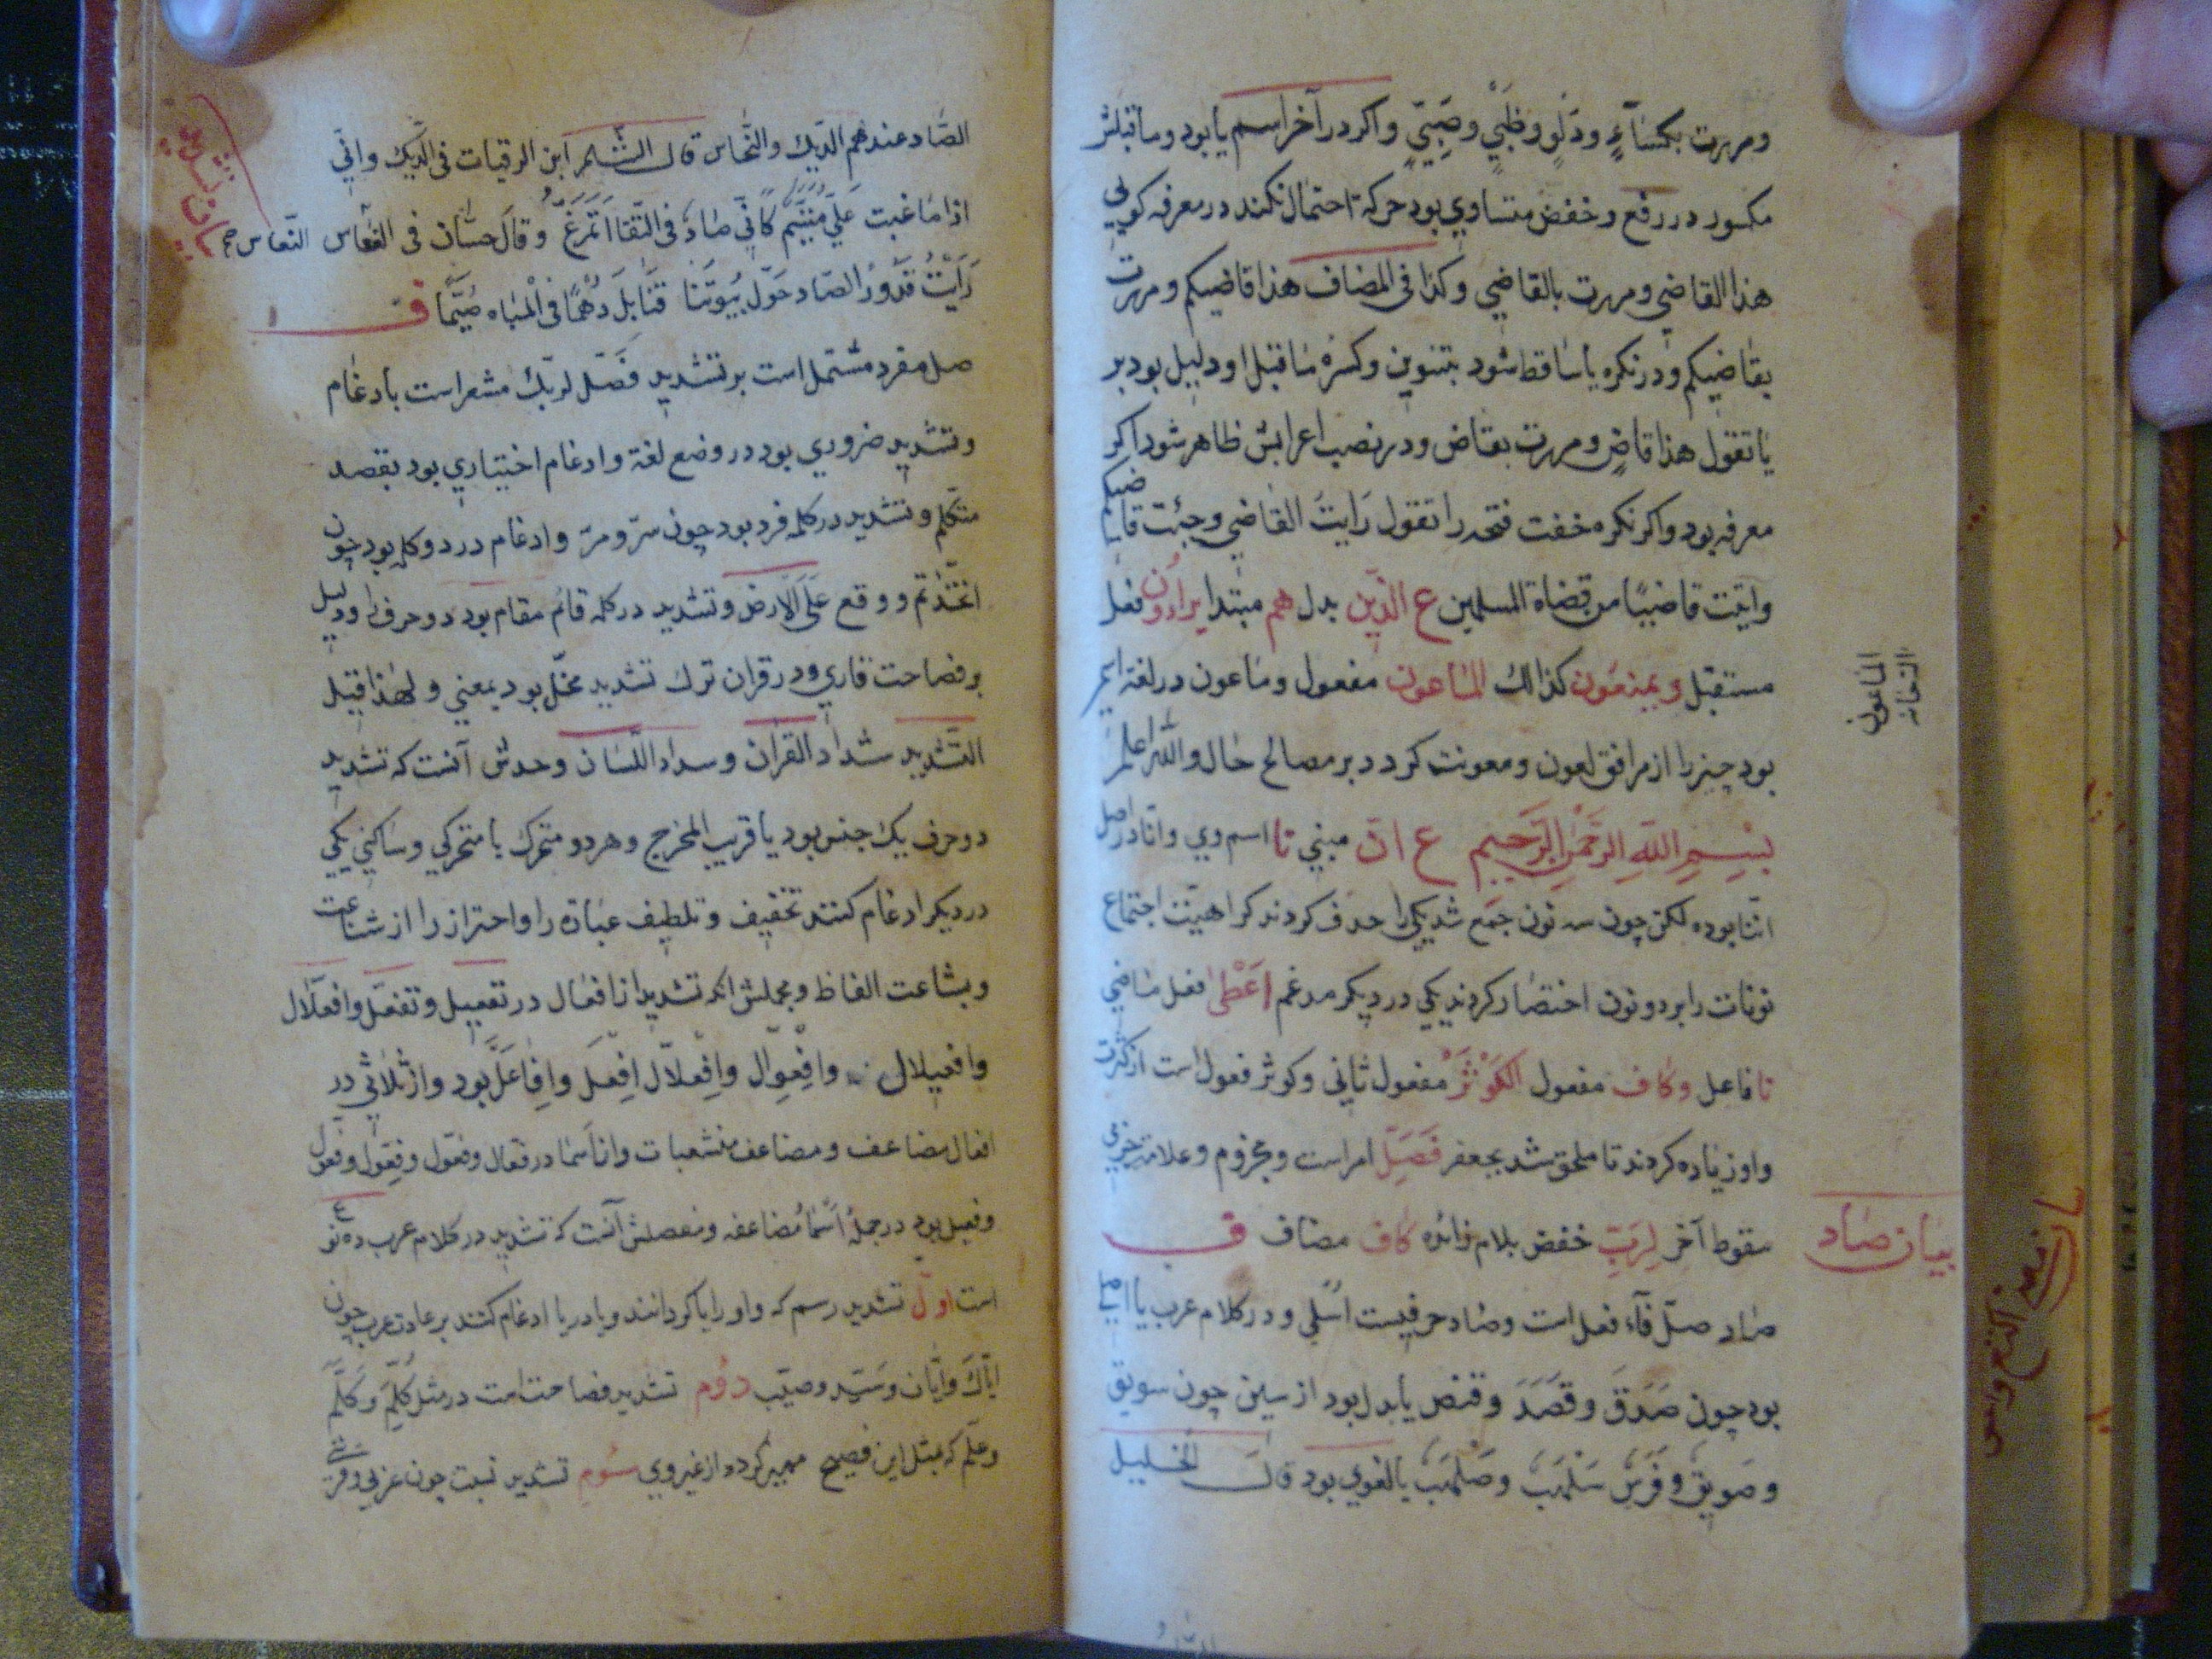 ومررت بكساءٍ ودلوٍ وظبيٍ وصبيٍّ واكر در آخر اسم يا بود وما قبلش
مكسور در رفع وخفض متساوي بود حركة احتمال نكند در معرفه كويي
هذا القاضي ومررت بالقاضي وكذا في المضاف هذا قاضيكم ومررت
بقاضيكم ودر نكره يا ساقط شود بتنوين وكسره ما قبل او دليل بود بر
يا تقول هذا قاضٍ ومررت بقاض ودر نصب اعرابش ظاهر شود اكر
معرفه بود واكر نكره خفت فتحه را تقول رايت القاضي وجئت قاضيكم
واتيت قاضيًا من قضاة المسلمين ع الذين بدل هم مبتدا يراؤن فعل
مستقبل ويمنعون كذالك الماعون مفعول وماعون در لغة اسم
بود چيز را از مرافق لعون ومعونت كردد بر مصالح حال والله اعلم
بسم الله الرحمن الرحيم ع ان مبني نا اسم وي وانا در اصل
اننا بوده لكن چون سه نون جمع شد يكي را حذف كردند كراهيت اجتماع
نونات را بر دو نون اختصار كردند يكي در ديكر مدغم اعطى فعل ماضي
نا فاعل وكاف مفعول الكوثر مفعول ثاني وكوثر فعول است از كثرت
واو زياده كردند تا ملحق شد بجعفر فصل امر است ومجزوم وعلامة جزمي
سقوط آخر لربك خفض بلام زائده كاف مضاف ف
بيان صاد
صاد صل فاء فعل است وصاد حرفيست اسلي ودر كلام عرب يا اصلي
بود چون صدق وقصد وقنص يا بدل بود از سين چون سويق
وصويق وفرس سلهب وصلهب يا لغوي بود قال الخليل
الماعون
الصاد عندهم الديك والنحاس قال الشاعر ابن الرقيات في الديك واني
اذا ما غبت علي كاني صاد في النقا اتمرغ وقال حسان في النحاس صح
رأيت قدور الصاد حول بيوتنا قنابل دهما في المباه صيما ف
صل مفرد مشتمل است بر تشديد فصل لربك مشعر است بادغام
وتشديد ضروري بود در وضع لغة وادغام اختياري بود بقصد
متكلم وتشديد در كلمه فرد بود چون سر ومر وادغام در دو كلمه بود چون
اتخذتم ووقع على الارض وتشديد در كلمه قائم مقام بود دو حرف را ودليل
بر فصاحت قاري ودر قران ترك تشديد مخل بود بمعني ولهذا قيل
التشديد شداد القران وسداد اللسان وحدش آنست كه تشديد
دو حرف يك جنس بود يا قريب المخرج وهر دو متحرك يا متحركي وساكني يكي
در ديكر ادغام كنند تخفيف وتلطيف عبارة را واحتراز را از شناعت
وبشاعت الفاظ ومجملش انكه تشديد از افعال در تفعيل وتفعل وافعلال
وافعيلال وافعوال وافعلال افعل وافاعل بود واز ثلاثي در
افعال مضاعف ومضاعف منشعبات واز اسما در فعال وفعول وفعول وفعول
وفعيل بود در جملهٔ اسما مضاعفه ومفصلش آنست كه تشديد در كلام عرب ده نوع
است اول تشديد رسم كه واو را يا كردانند ويا در يا ادغام كنند بر عادت عرب چون
اياك وايان وسيد وصيب دوم تشديد فصاحت است در مثل كلم وكلم
وعلم كه بمثل اين فصيح مميز كرده از غير وي سوم تشديد نسبت چون عربي وقرشي
بيان تشديد